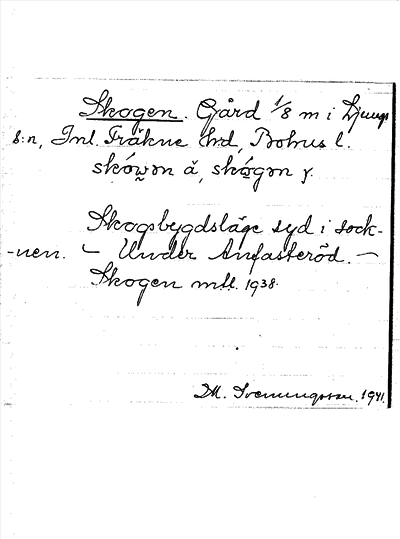 Skogen. Gård 1/8 m i Ljungs
s:n, Inl. Fräkne hrd, Bohus l.
skówǝn ä, skógǝn y.
Skogsbygdsläge syd i sock-
-nen. – Under Anfasteröd. –
Skogen mtl. 1938.
M. Svenungsson. 1941.